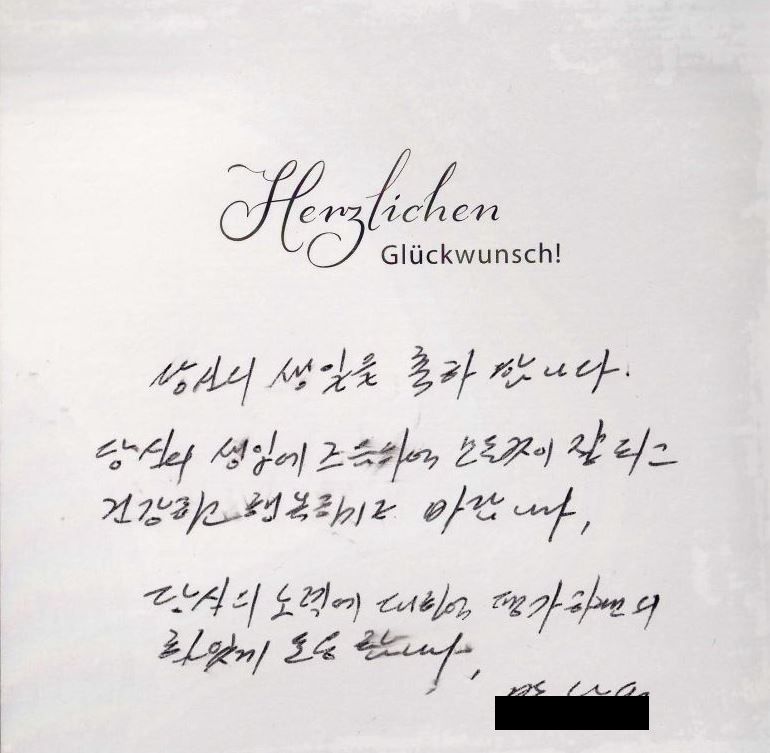 Herzlichen
Glückwunsch!
당신의 생일을 축하 합니다.
당신의 생일에 즈음하여 모든것이 잘 되고
건강하고 행복하기르 바랍니다,
당신의 노력에 대하여 평가하면서